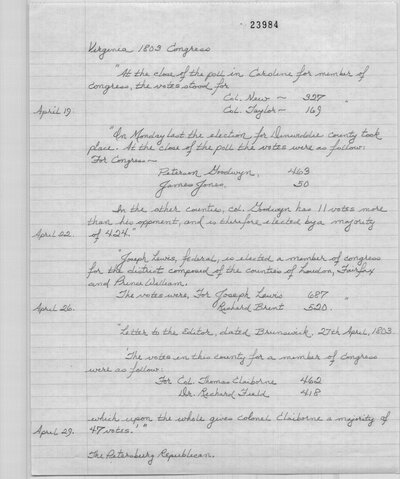 23984
Virginia 1803 Congress
"At the close of the poll in Caroline for member of
congress, the votes stood for
Col. New ~ 327
April 19. Col. Taylor ~ 169 "
"On Monday last the election for Dinwiddie county took
place. At the close of the poll the votes were as follow:
For Congress ~
Peterson Goodwyn, 463
James Jones, 50
In the other counties, col. Goodwyn has 11 votes more
than his opponent, and is therefore elected by a majority
April 22. of 424."
"Joseph Lewis, federal, is elected a member of congress
for the district composed of the counties of Loudon, Fairfax
and Prince William.
The votes were, For Joseph Lewis 687
April 26. Richard Brent 520. "
"Letter to the Editor, dated Brunswick, 27th April, 1803.
'The votes in this county for a member of congress
were as follow:
For Col. Thomas Claiborne 462
Dr. Richard Field 418
which upon the whole gives colonel Claiborne a majority of
April 29. 47 votes.' "
The Petersburg Republican.